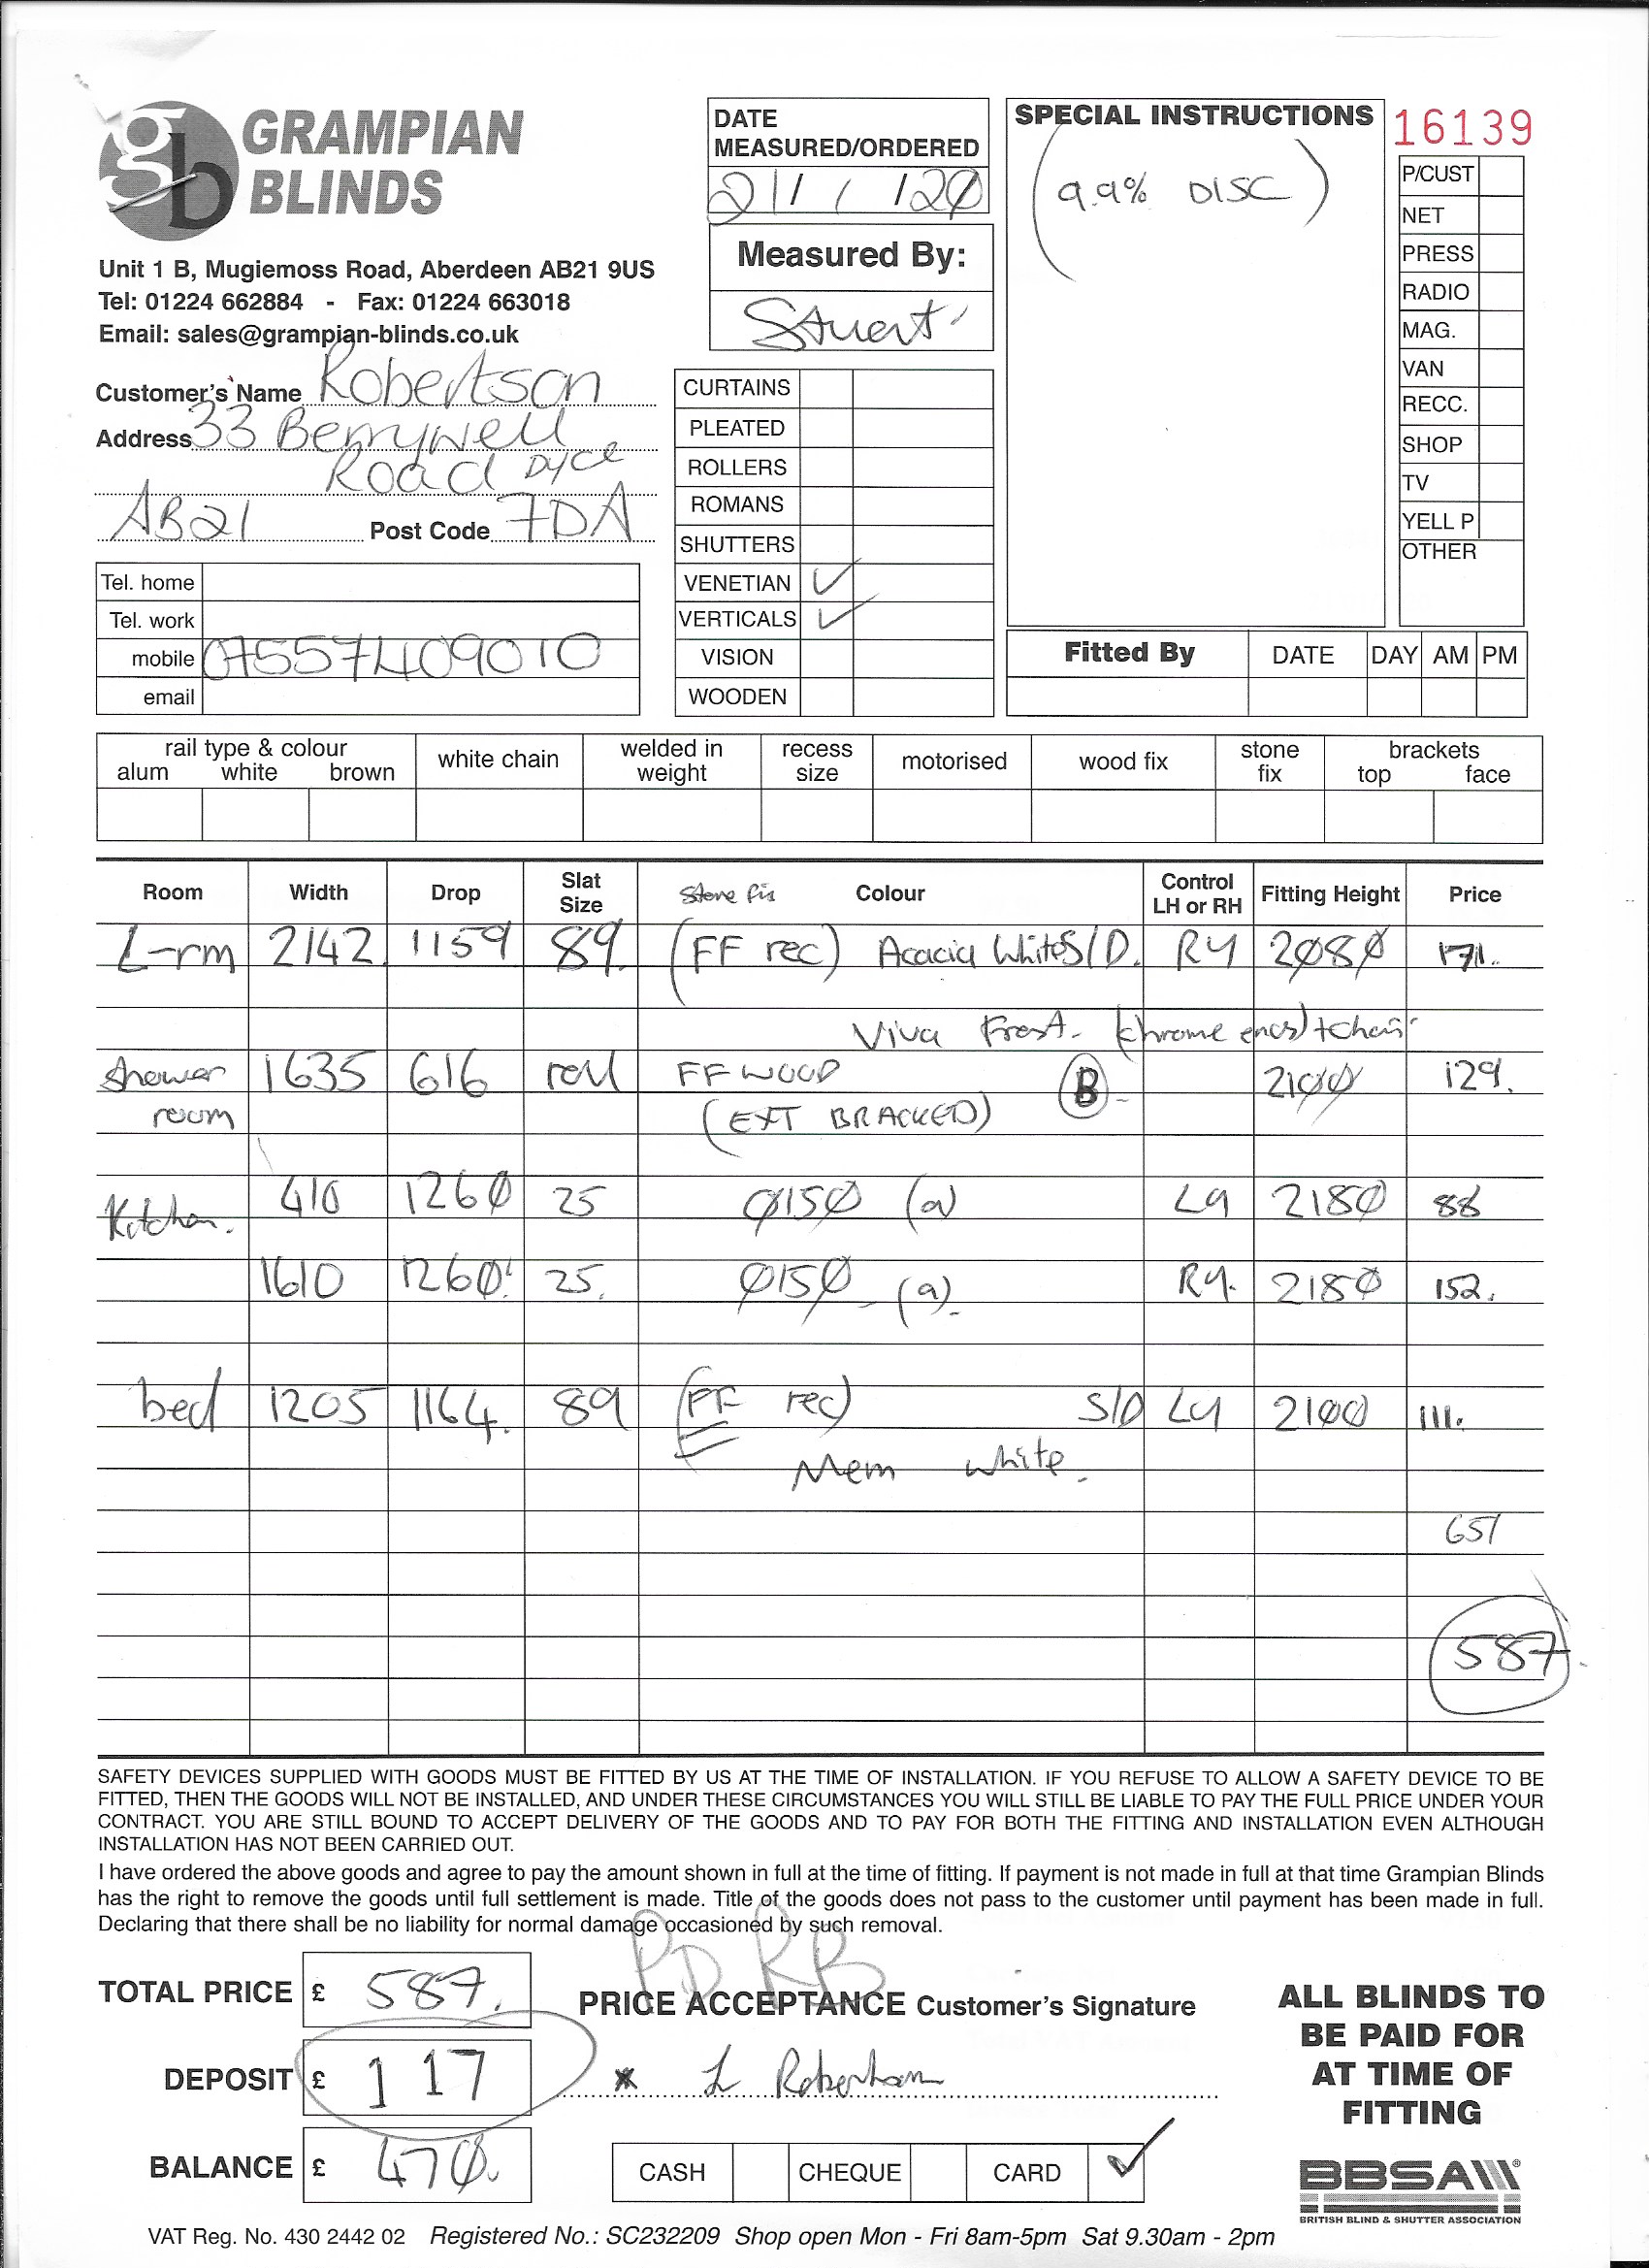 gb GRAMPIAN BLINDS
Unit 1 B, Mugiemoss Road, Aberdeen AB21 9US
Tel: 01224 662884 - Fax: 01224 663018
Email: sales@grampian-blinds.co.uk
Customer's Name Robertson
Address 33 Berrywell
Road Dyce
AB21 Post Code 7DA
Tel. home
Tel. work
mobile 07557409010
email
DATE
MEASURED/ORDERED
21/1/20
Measured By:
Stuart
CURTAINS
PLEATED
ROLLERS
ROMANS
SHUTTERS
VENETIAN ✓
VERTICALS ✓
VISION
WOODEN
SPECIAL INSTRUCTIONS
(9.9% DISC)
16139
P/CUST
NET
PRESS
RADIO
MAG.
VAN
RECC.
SHOP
TV
YELL P
OTHER
Fitted By DATE DAY AM PM
rail type & colour
alum white brown
white chain
welded in weight
recess size
motorised
wood fix
stone fix
brackets
top face
Room Width Drop Slat Size Stone fix Colour Control LH or RH Fitting Height Price
L-rm 2142 1159 89. (FF rec) Acacia White S/D. RH 2080 171.
Viva Frost. (chrome ends) + chain
Shower room 1635 616 roll FF WOOD B 2100 129.
(EXT BRACKED)
Kitchen. 410 1260 25 0150 (a) LH 2180 88
1610 1260 25. 0150 (a). RH. 2180 152.
bed 1205 1164. 89 (FF rec) S/D LH 2100 111.
Mem white.
651
587.
SAFETY DEVICES SUPPLIED WITH GOODS MUST BE FITTED BY US AT THE TIME OF INSTALLATION. IF YOU REFUSE TO ALLOW A SAFETY DEVICE TO BE
FITTED, THEN THE GOODS WILL NOT BE INSTALLED, AND UNDER THESE CIRCUMSTANCES YOU WILL STILL BE LIABLE TO PAY THE FULL PRICE UNDER YOUR
CONTRACT. YOU ARE STILL BOUND TO ACCEPT DELIVERY OF THE GOODS AND TO PAY FOR BOTH THE FITTING AND INSTALLATION EVEN ALTHOUGH
INSTALLATION HAS NOT BEEN CARRIED OUT.
I have ordered the above goods and agree to pay the amount shown in full at the time of fitting. If payment is not made in full at that time Grampian Blinds
has the right to remove the goods until full settlement is made. Title of the goods does not pass to the customer until payment has been made in full.
Declaring that there shall be no liability for normal damage occasioned by such removal.
PD RB
TOTAL PRICE £ 587.
DEPOSIT £ 117
BALANCE £ 470.
PRICE ACCEPTANCE Customer's Signature
x L Robertson
CASH CHEQUE CARD ✓
ALL BLINDS TO
BE PAID FOR
AT TIME OF
FITTING
BBSA®
BRITISH BLIND & SHUTTER ASSOCIATION
VAT Reg. No. 430 2442 02 Registered No.: SC232209 Shop open Mon - Fri 8am-5pm Sat 9.30am - 2pm